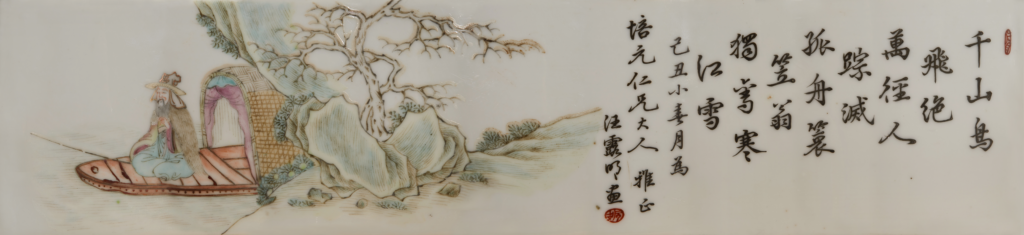 千山鳥
飛絶
萬徑人
踪滅
孤舟簑
笠翁
獨寒
江雪
己丑小春月為
培元仁兄大人 雅正
汪露明畫